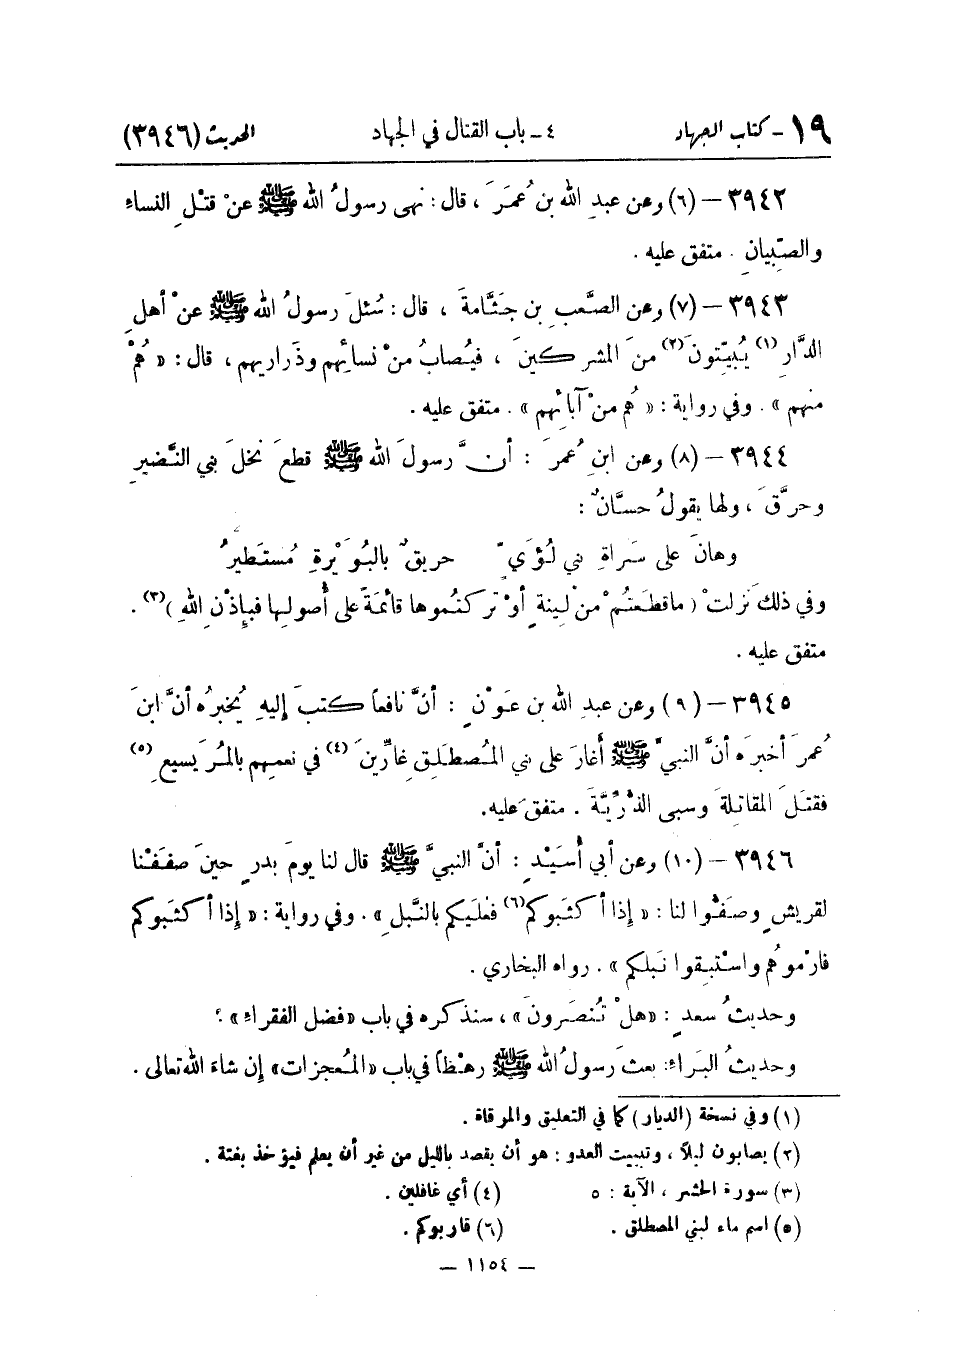 ١٩ - كتاب الجهاد ٤ - باب القتال في الجهاد الحديث (٣٩٤٦)
٣٩٤٢ - (٦) وعن عبدِ الله بن عُمَرَ ، قال : نهى رسولُ الله ﷺ عنْ قتْلِ النساءِ
والصِّبيانِ . متفق عليه .
٣٩٤٣ - (٧) وعن الصَّعبِ بن جَثَّامةَ ، قال : سُئلَ رسولُ الله ﷺ عنْ أهلِ
الدَّارِ (١) يُبيَّتونَ (٢) منَ المشركينَ ، فيُصابُ منْ نسائِهم وذَراريهم ، قال : « هُمْ
منهم » . وفي رواية : « هُم منْ آبائِهم » . متفق عليه .
٣٩٤٤ - (٨) وعن ابنِ عُمرَ : أنَّ رسولَ الله ﷺ قطعَ نخلَ بني النَّضيرِ
وحرَّقَ ، ولها يقولُ حسَّانٌ :
وهانَ على سَراةِ بني لُؤَيٍّ حريقٌ بالبُوَيْرةِ مُستَطيرُ
وفي ذلكَ نزلتْ ( ماقطَعتُمْ منْ لِينةٍ أوْ تركتُموها قائمةً على أُصولِها فبإِذْنِ اللهِ ) (٣) .
متفق عليه .
٣٩٤٥ - (٩) وعن عبدِ الله بن عَوْنٍ : أنَّ نافعاً كتبَ إليهِ يُخبرُه أنَّ ابنَ
عُمرَ أخبرَه أنَّ النبيَّ ﷺ أغارَ على بني المُصطَلِقِ غارِّينَ (٤) في نعمِهم بالمُرَيسيعِ (٥)
فقتلَ المقاتِلةَ وسبى الذُّرِّيَّةَ . متفق عليه.
٣٩٤٦ - (١٠) وعن أبي أُسَيْدٍ : أنَّ النبيَّ ﷺ قال لنا يومَ بدرٍ حينَ صفَفْنا
لقريشٍ وصَفُّوا لنا : « إذا أكثَبوكم (٦) فعليكم بالنَّبلِ » . وفي رواية : « إذا أكثَبوكم
فارْموهُم واسْتبِقوا نَبلَكم » . رواه البخاري .
وحديثُ سعدٍ : «هلْ تُنصَرونَ» ، سنذكره في باب «فضل الفقراءِ» ؟
وحديثُ البَراءِ: بعثَ رسولُ الله ﷺ رهْطاً في باب «المُعجزات» إن شاءَ الله تعالى .
(١) وفي نسخة (الديار) كما في التعليق والمرقاة .
(٢) يصابون ليلاً ، وتبييت العدو : هو أن يقصد بالليل من غير أن يعلم فيؤخذ بغتة .
(٣) سورة الحشر ، الآية : ٥ (٤) أي غافلين .
(٥) اسم ماء لبني المصطلق . (٦) قاربوكم .
— ١١٥٤ —